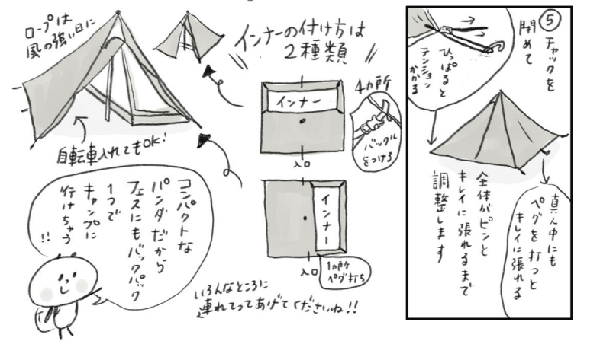 ⑤
チャックを
閉めて
ひっぱると
テンション
かかる
全体がピンと
キレイに張れるまで
調整します
真ん中にも
ペグを打つと
キレイに張れる
ロープは
風の強い日に
自転車入れてもOK!
インナーの付け方は
2種類
インナー
入口
4カ所
バックル
をつける
インナー
入口
1カ所
ペグ打ち
コンパクトな
パンダだから
フェスにもバックパック
1つで
キャンプに
行けちゃう
!!
いろんなところに
連れてってあげてくださいね!!